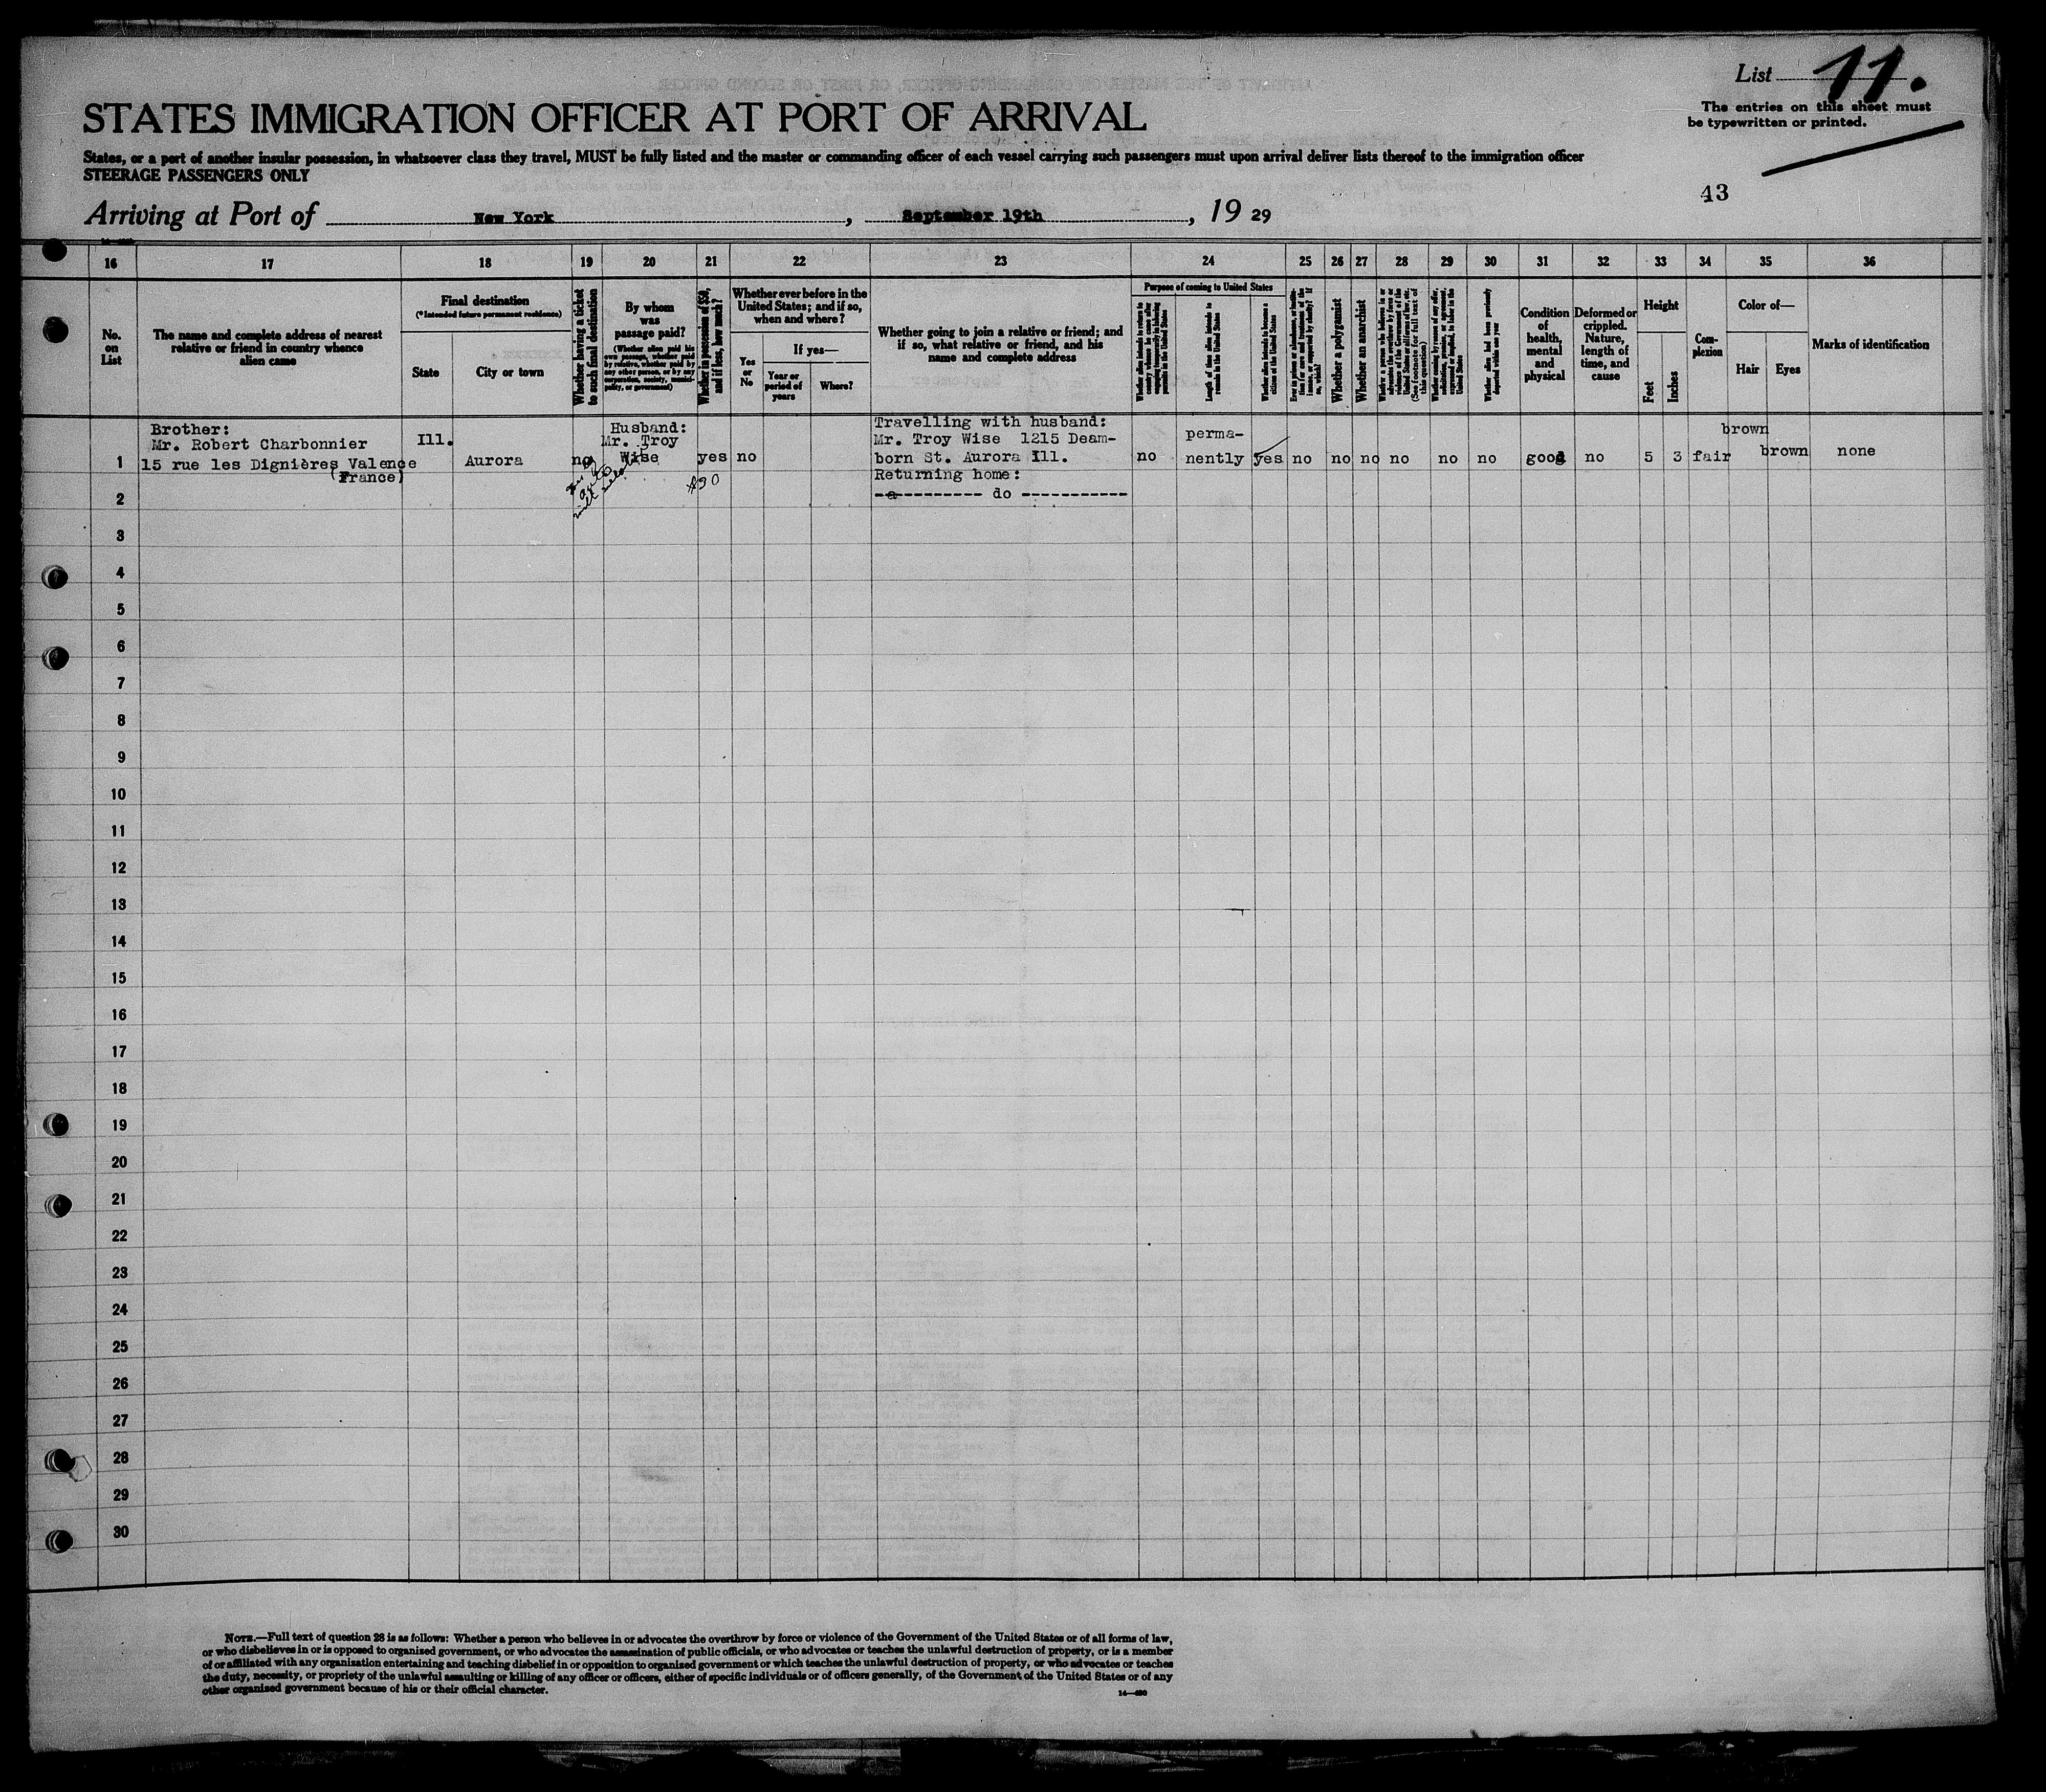 List 11.
The entries on this sheet must
be typewritten or printed.
STATES IMMIGRATION OFFICER AT PORT OF ARRIVAL
States, or a port of another insular possession, in whatsoever class they travel, MUST be fully listed and the master or commanding officer of each vessel carrying such passengers must upon arrival deliver lists thereof to the immigration officer
STEERAGE PASSENGERS ONLY
43
Arriving at Port of New York, September 19th, 19 29
16 17 18 19 20 21 22 23 24 25 26 27 28 29 30 31 32 33 34 35 36
No.
on
List
The name and complete address of nearest
relative or friend in country whence
alien came
Final destination
(*Intended future permanent residence)
State
City or town
Whether having a ticket
to such final destination
By whom
was
passage paid?
(Whether alien paid his
own passage, whether paid
by relative, whether paid by
any other person, or by any
corporation, society, munici-
pality, or government)
Whether in possession of $50,
and if less, how much?
Whether ever before in the
United States; and if so,
when and where?
Yes
or
No
If yes—
Year or
period of
years
Where?
Whether going to join a relative or friend; and
if so, what relative or friend, and his
name and complete address
Purpose of coming to United States
Length of time alien intends to
remain in the United States
Whether alien intends to become a
citizen of the United States
Whether a polygamist
Whether an anarchist
Whether alien had been previously
deported within one year
Condition
of
health,
mental
and
physical
Deformed or
crippled.
Nature,
length of
time, and
cause
Height
Feet
Inches
Com-
plexion
Color of—
Hair
Eyes
Marks of identification
1
Brother:
Mr. Robert Charbonnier
15 rue les Dignières Valence
(France)
Ill.
Aurora
no
Husband:
Mr. Troy
Wise
yes
$90
no
Travelling with husband:
Mr. Troy Wise 1215 Deam-
born St. Aurora Ill.
Returning home:
no
perma-
nently
yes
no
no
no
no
no
no
good
no
5
3
fair
brown
brown
none
2
--------- do -----------
3
4
5
6
7
8
9
10
11
12
13
14
15
16
17
18
19
20
21
22
23
24
25
26
27
28
29
30
NOTE.—Full text of question 28 is as follows: Whether a person who believes in or advocates the overthrow by force or violence of the Government of the United States or of all forms of law,
or who disbelieves in or is opposed to organized government, or who advocates the assassination of public officials, or who advocates or teaches the unlawful destruction of property, or is a member
of or affiliated with any organization entertaining and teaching disbelief in or opposition to organized government or which teaches the unlawful destruction of property, or who advocates or teaches
the duty, necessity, or propriety of the unlawful assaulting or killing of any officer or officers, either of specific individuals or of officers generally, of the Government of the United States or of any
other organized government because of his or their official character.
14—480